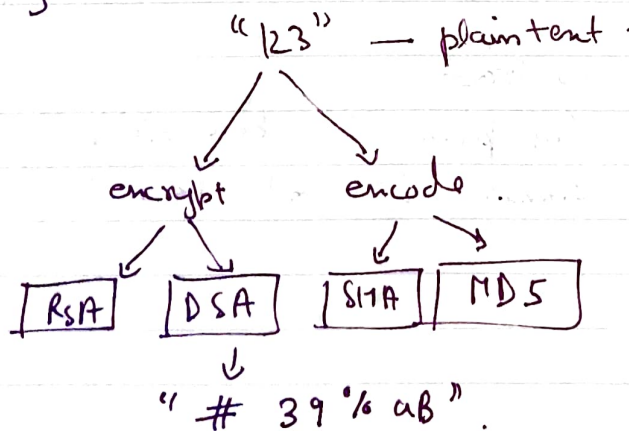 "123" — plain text
encrypt encode.
RSA DSA SHA MD5
"# 39 % aB".